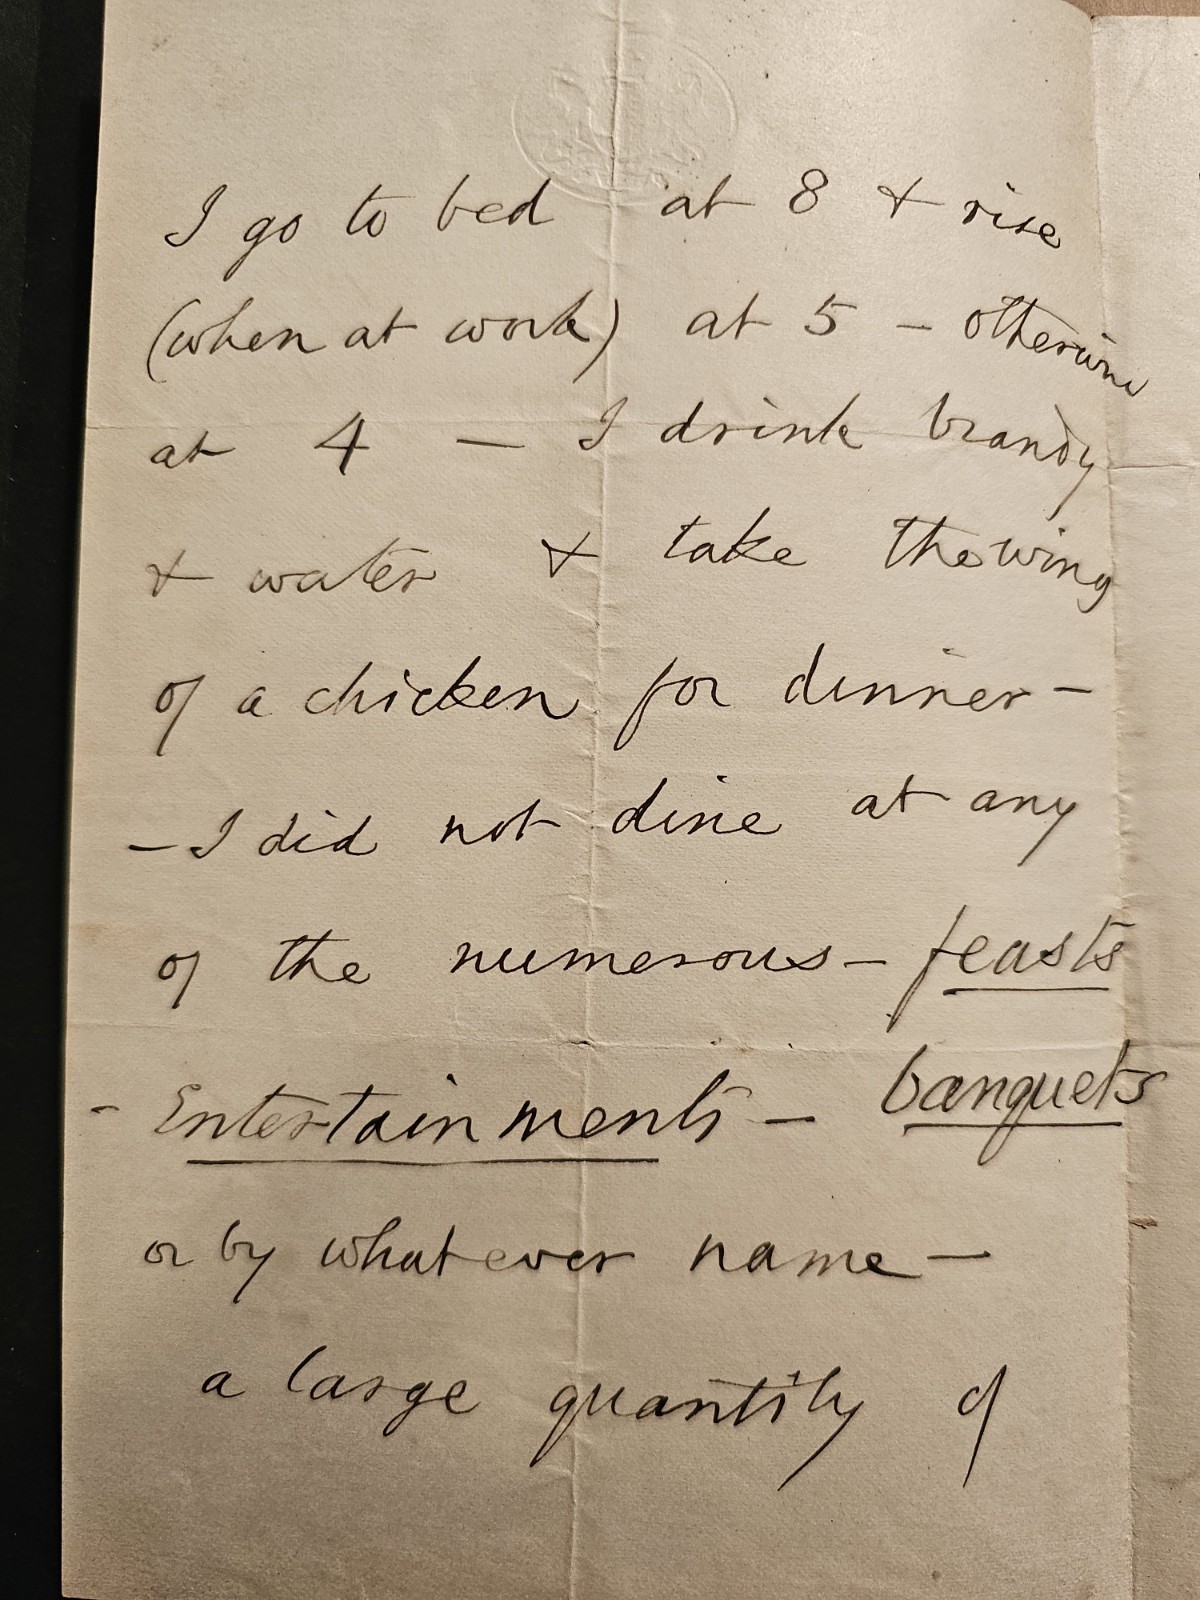 I go to bed at 8 & rise
(when at work) at 5 - otherwise
at 4 — I drink brandy
& water & take the wing
of a chicken for dinner -
- I did not dine at any
of the numerous - feasts
- Entertainments - banquets
or by whatever name -
a large quantity of